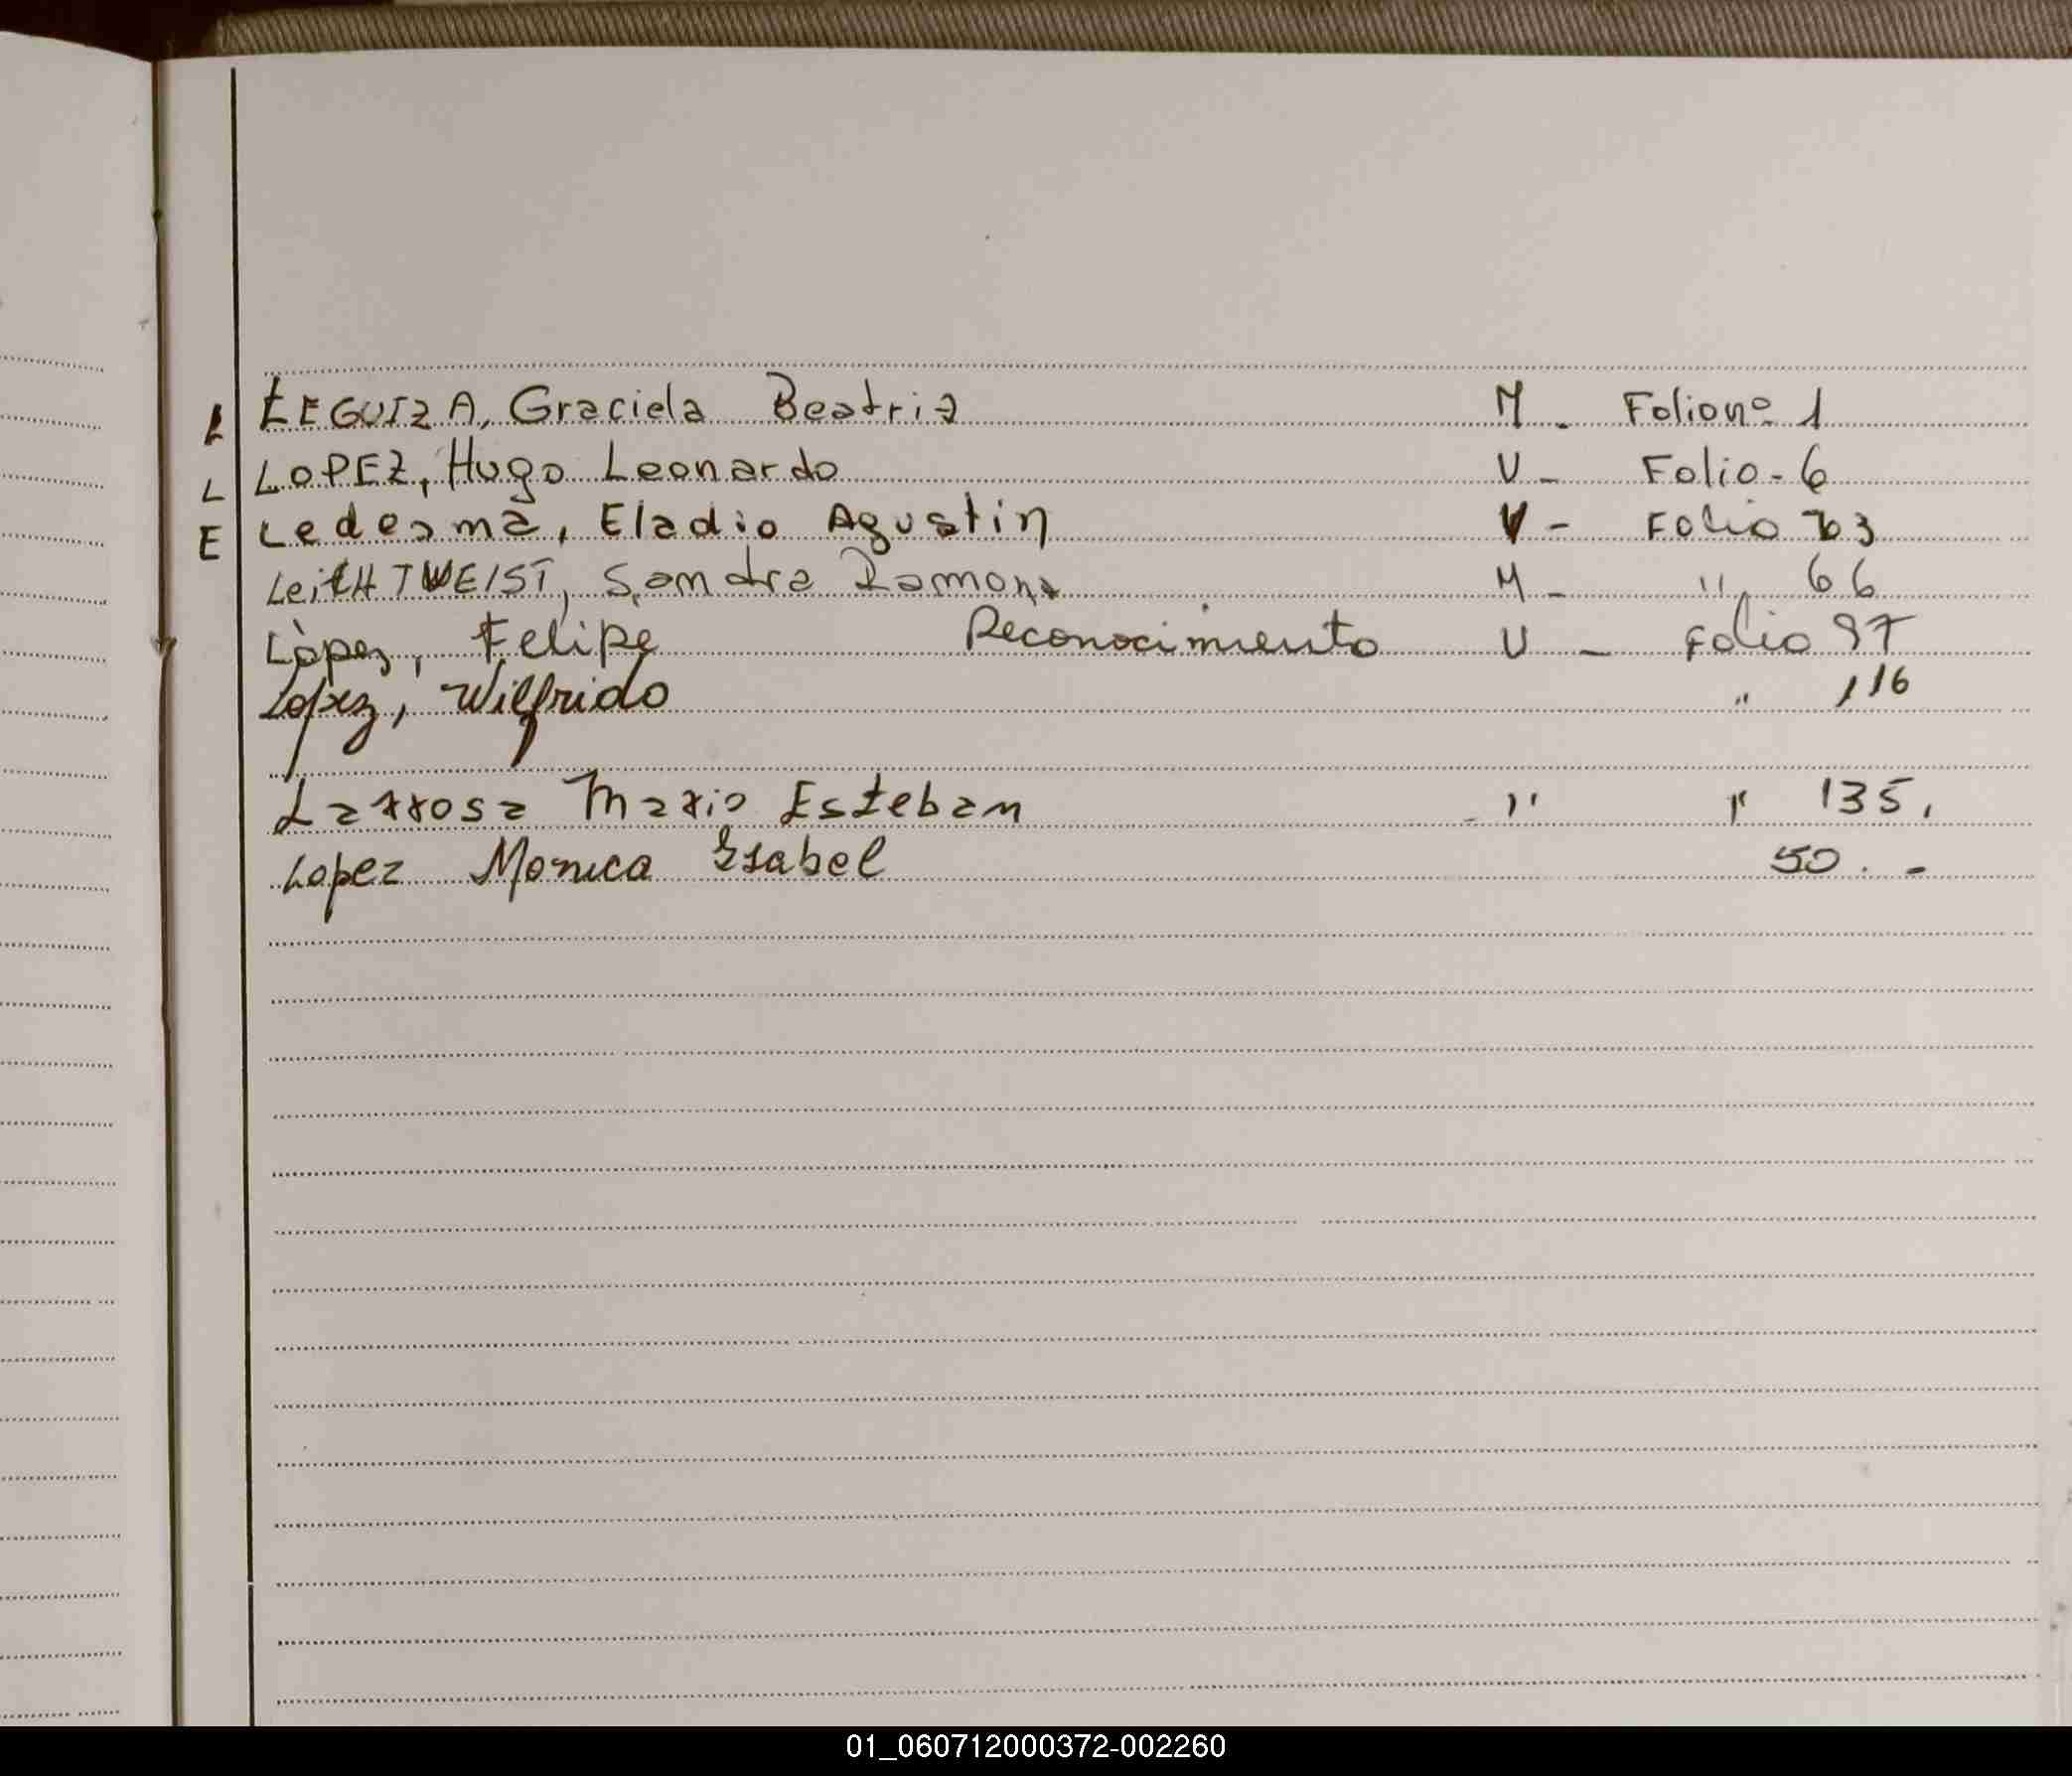 L LEGUIZA, Graciela Beatriz M - Folio nº 1
L LOPEZ, Hugo Leonardo V - Folio - 6
E Ledesma, Eladio Agustin V - Folio 63
LeitH TWEIST, Sandra Ramona M - " 66
Lòpez, Felipe Reconocimiento V - Folio 97
Lopez, Wilfrido " 116
Larrosa Mario Esteban - " " 135.
Lopez Monica Ysabel 50. -
01_060712000372-002260